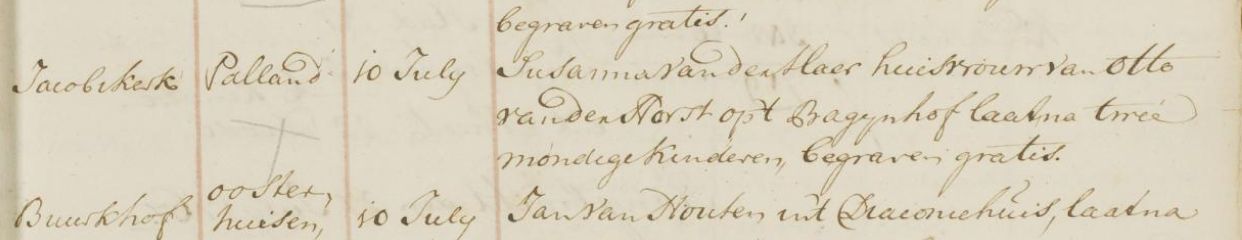 begraven gratis.
Jacobikerk Palland 10 July Susanna van den Haer huisvrouw van Otto
van den Horst op't Bagynhof laat na twee
mondige kinderen, begraven gratis.
Buurkhof ooster,
huisen, 10 July Jan van Houten uit Diaconiehuis, laat na